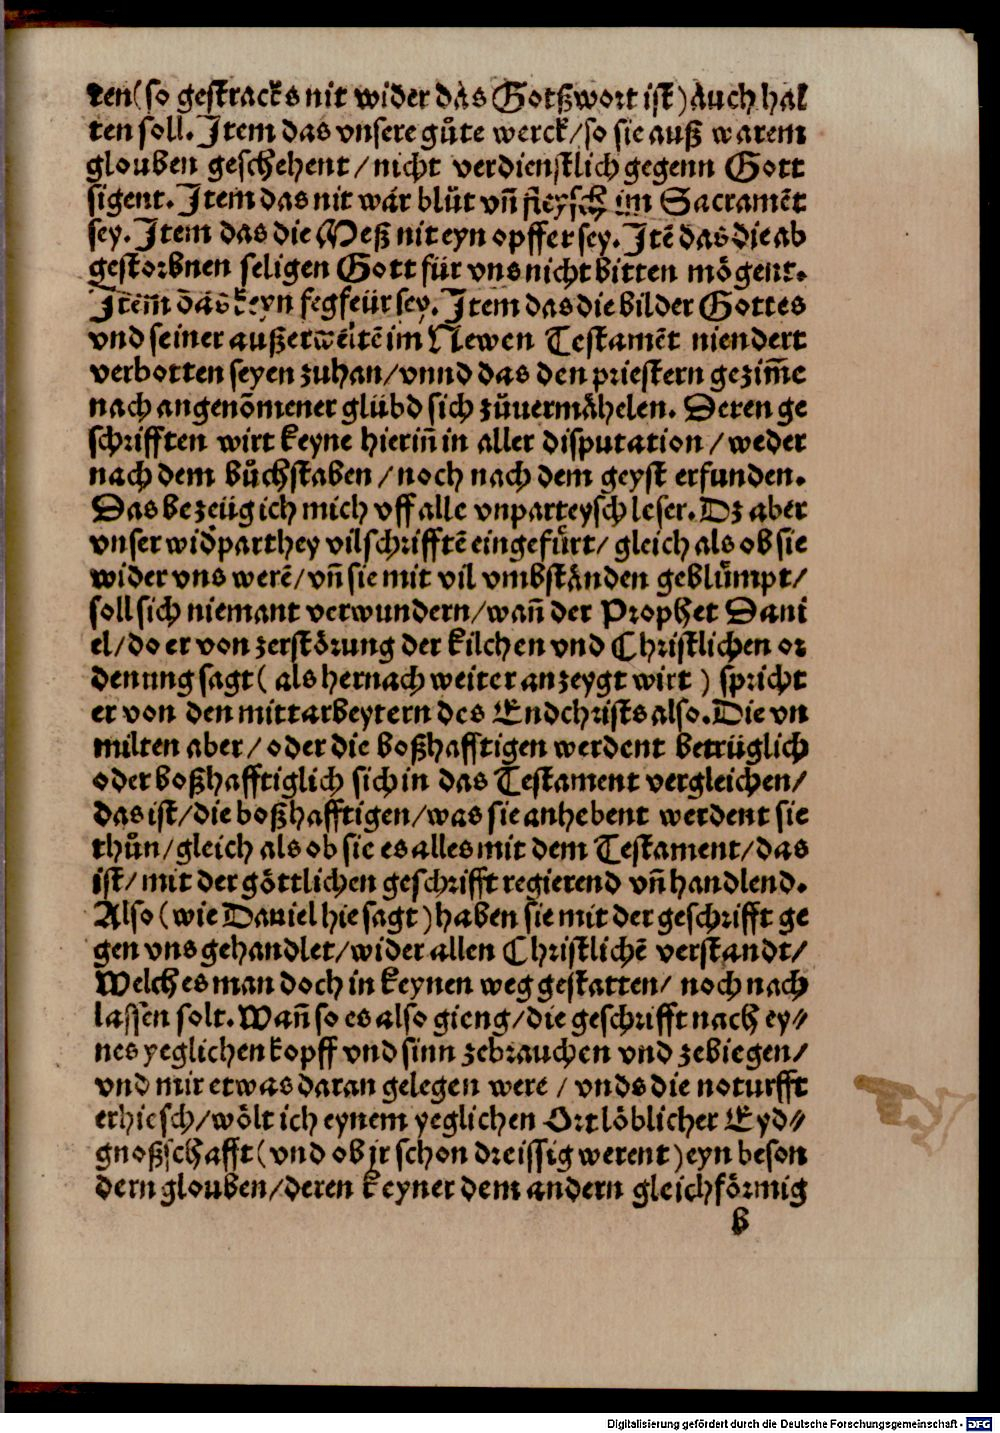 ten(so gestracks nit wider das Gotßwort ist)auch hal
ten soll. Item das vnsere gůte werck/so sie auß warem
glouben geschehent/nicht verdienstlich gegenn Gott
sigent. Item das nit wár blůt vñ fleysch im Sacramēt
sey. Item das die Meß nit eyn opffer sey. Itē das die ab
gestorbnen seligen Gott für vns nicht bitten mögent.
Item̄ das keyn fegfeür sey. Item das die bilder Gottes
vnd seiner außerweltē im Newen Testamēt niendert
verbotten seyen zuhan/vnnd das den priestern gezim̄e
nach angenōmener glübd sich zůuermähelen. Deren ge
schrifften wirt keyne hieriñ in aller disputation/weder
nach dem bůchstaben/noch nach dem geyst erfunden.
Das bezeüg ich mich vff alle vnparteysch leser. Dz aber
vnser widparthey vil schrifftē eingefürt/gleich als ob sie
wider vns werē/vñ sie mit vil vmbständen geblümpt/
soll sich niemant verwundern/wañ der Prophet Dani
el/do er von zerstörung der kilchen vnd Christlichen or
denung sagt(als hernach weiter anzeygt wirt) spricht
er von den mittarbeytern des Endchrists also. Die vn
milten aber/oder die boßhafftigen werdent betrüglich
oder boßhafftiglich sich in das Testament vergleichen/
das ist/die boßhafftigen/was sie anhebent werdent sie
thůn/gleich als ob sie es alles mit dem Testament/das
ist/mit der göttlichen geschrifft regierend vñ handlend.
Also(wie Daniel hie sagt)haben sie mit der geschrifft ge
gen vns gehandlet/wider allen Christlichē verstandt/
Welches man doch in keynen weg gestatten/noch nach
lassen solt. Wañ so es also gieng/die geschrifft nach ey⸗
nes yeglichen kopff vnd sinn zebrauchen vnd zebiegen/
vnd mir etwas daran gelegen were/vnds die noturfft
erhiesch/wölt ich eynem yeglichen Ort löblicher Eyd⸗
gnoßschafft(vnd ob jr schon dreissig werent)eyn beson
dern glouben/deren keyner dem andern gleichförmig
b
Digitalisierung gefördert durch die Deutsche Forschungsgemeinschaft - DFG